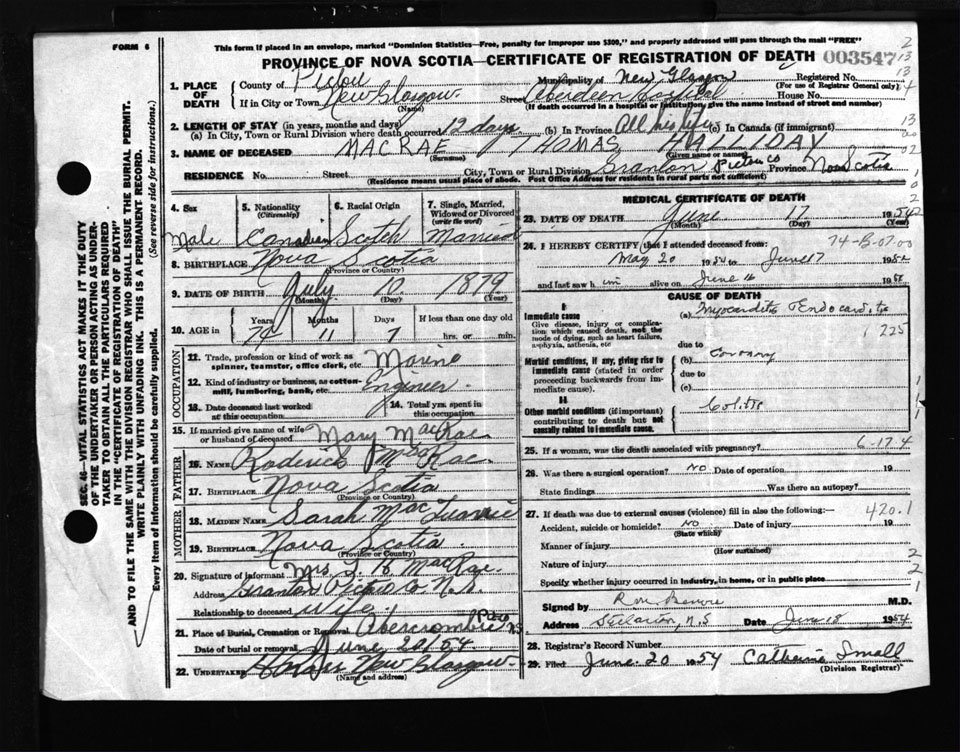 FORM 6
This form if placed in an envelope, marked "Dominion Statistics—Free, penalty for improper use $300," and properly addressed will pass through the mail "FREE"
PROVINCE OF NOVA SCOTIA—CERTIFICATE OF REGISTRATION OF DEATH 003547
1. PLACE OF DEATH
County of Pictou Municipality of New Glasgow Registered No.
(For use of Registrar General only)
If in City or Town New Glasgow Street Aberdeen Hospital House No.
(Name) (If death occurred in a hospital or institution, give the name instead of street and number)
2. LENGTH OF STAY (in years, months and days)
(a) In City, Town or Rural Division where death occurred 12 days (b) In Province All his life (c) In Canada (if immigrant)
3. NAME OF DECEASED MACRAE THOMAS HALLIDAY
(Surname) (Given name or names)
RESIDENCE No. Street City, Town or Rural Division Granton Pictou Co Province Nova Scotia
(Residence means usual place of abode. Post Office Address for residents in rural parts not sufficient)
4. Sex 5. Nationality (Citizenship) 6. Racial Origin 7. Single, Married, Widowed or Divorced (write the word)
Male Canadian Scotch Married
8. BIRTHPLACE Nova Scotia
(Province or Country)
9. DATE OF BIRTH July 10 1879
(Month) (Day) (Year)
10. AGE in Years Months Days If less than one day old
74 11 7 hrs. or min.
OCCUPATION
11. Trade, profession or kind of work as spinner, teamster, office clerk, etc. Marine
12. Kind of industry or business, as cotton-mill, lumbering, bank, etc. Engineer
13. Date deceased last worked at this occupation 14. Total yrs. spent in this occupation
15. If married give name of wife or husband of deceased Mary MacRae
FATHER
16. NAME Roderick MacRae
17. BIRTHPLACE Nova Scotia
(Province or Country)
MOTHER
18. MAIDEN NAME Sarah Mac
19. BIRTHPLACE Nova Scotia
(Province or Country)
20. Signature of informant Mrs. T. H. MacRae
Address Granton Pictou Co. N.S.
Relationship to deceased Wife
21. Place of Burial, Cremation or Removal Abercrombie Pictou N.S
Date of burial or removal June 20/54
22. UNDERTAKER New Glasgow
(Name and address)
MEDICAL CERTIFICATE OF DEATH
23. DATE OF DEATH June 17 1954
(Month) (Day)
24. I HEREBY CERTIFY that I attended deceased from: 74-B-07.00
May 20 1954 to June 17 1954
and last saw him alive on June 16 1954
CAUSE OF DEATH
I
Immediate cause
Give disease, injury or complication which caused death, not the mode of dying, such as heart failure, asphyxia, asthenia, etc.
(a) Myocarditis Endocarditis
1 225
due to
Morbid conditions, if any, giving rise to immediate cause (stated in order proceeding backwards from immediate cause).
(b) Coronary
due to
(c)
II
Other morbid conditions (if important) contributing to death but not causally related to immediate cause.
Colitis
25. If a woman, was the death associated with pregnancy? 6-17.4
26. Was there a surgical operation? NO Date of operation 19
State findings Was there an autopsy?
27. If death was due to external causes (violence) fill in also the following:— 420.1
Accident, suicide or homicide? NO Date of injury 19
(State which)
Manner of injury
(How sustained)
Nature of injury
Specify whether injury occurred in industry, in home, or in public place
Signed by M.D.
Address Stellarton, N.S Date June 18 1954
28. Registrar's Record Number
29. Filed June 20 1954 Catharine Small
(Division Registrar)
SEC. 46—VITAL STATISTICS ACT MAKES IT THE DUTY
OF THE UNDERTAKER OR PERSON ACTING AS UNDERTAKER TO OBTAIN ALL THE PARTICULARS REQUIRED
IN THE "CERTIFICATE OF REGISTRATION OF DEATH"
AND TO FILE THE SAME WITH THE DIVISION REGISTRAR WHO SHALL ISSUE THE BURIAL PERMIT.
WRITE PLAINLY WITH UNFADING INK. THIS IS A PERMANENT RECORD.
Every item of information should be carefully supplied. (See reverse side for instructions.)